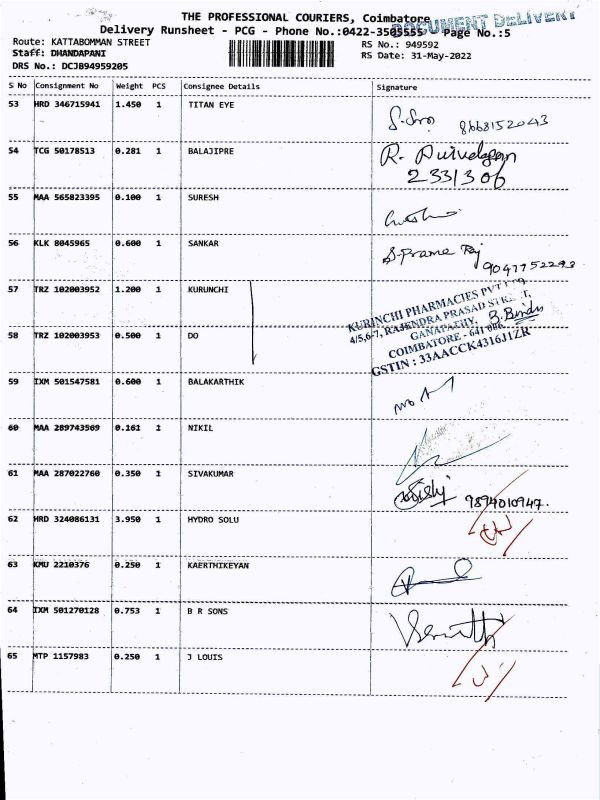 THE PROFESSIONAL COURIERS, Coimbatore
DOCUMENT DELIVERY
Delivery Runsheet - PCG - Phone No.:0422-3505555 Page No.:5
Route: KATTABOMMAN STREET
RS No.: 949592
Staff: DHANDAPANI
RS Date: 31-May-2022
DRS No.: DCJB94959205
S No Consignment No Weight PCS Consignee Details Signature
53 HRD 346715941 1.450 1 TITAN EYE
8668152043
54 TCG 50178513 0.281 1 BALAJIPRE
R.
2331306
55 MAA 565823395 0.100 1 SURESH
56 KLK 8045965 0.600 1 SANKAR
9047752293
57 TRZ 102003952 1.200 1 KURUNCHI
KURINCHI PHARMACIES PVT
4/5,6-7, RAJENDRA PRASAD STREET,
GANAPATHY,
58 TRZ 102003953 0.500 1 DO
COIMBATORE - 641 006
GSTIN : 33AACCK4316J1ZR
59 IXM 501547581 0.600 1 BALAKARTHIK
60 MAA 289743569 0.161 1 NIKIL
61 MAA 287022760 0.350 1 SIVAKUMAR
9894010947.
62 HRD 324086131 3.950 1 HYDRO SOLU
63 KMU 2210376 0.250 1 KAERTHIKEYAN
64 IXM 501270128 0.753 1 B R SONS
65 MTP 1157983 0.250 1 J LOUIS